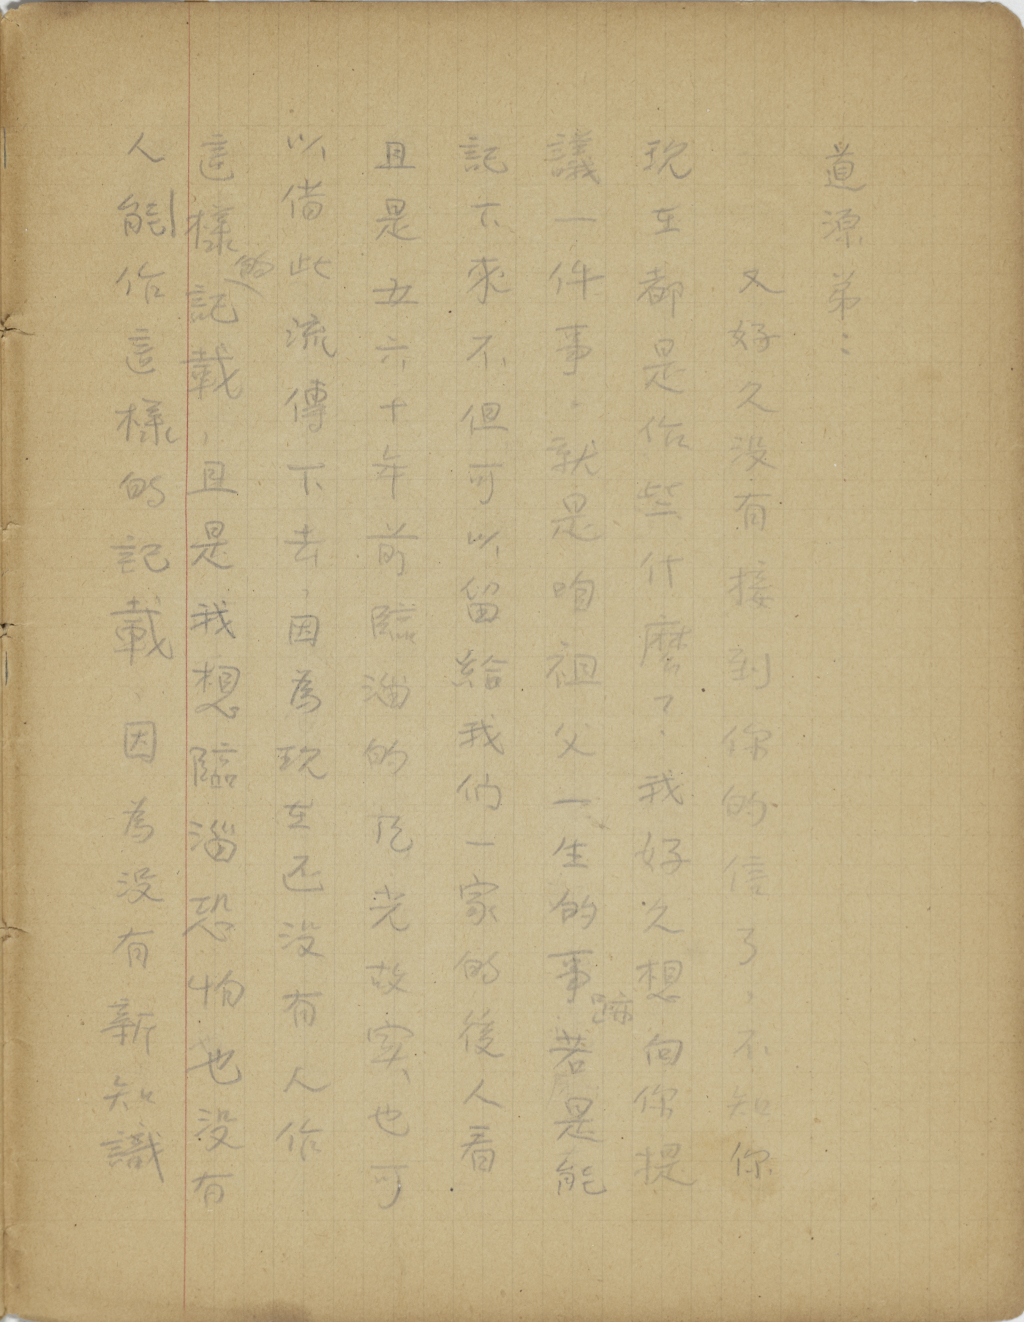 道源弟：
又好久没有接到你的信了，不知你
现在都是作些什麽了．我好久想向你提
議一件事．就是咱祖父一生的事蹟若是能
記下來不但可以留給我们一家的後人看
且是五六十年前臨淄的风光故实也可
以借此流傳下去，因為现在还没有人作
這樣的記載，且是我想臨淄恐怕也没有
人能作這樣的記載，因為没有新知識